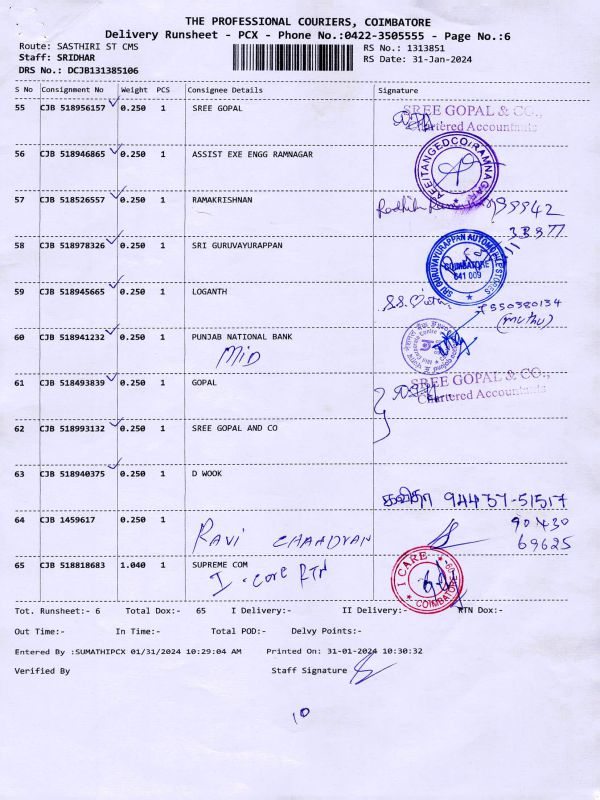 THE PROFESSIONAL COURIERS, COIMBATORE
Delivery Runsheet - PCX - Phone No.:0422-3505555 - Page No.:6
Route: SASTHIRI ST CMS
RS No.: 1313851
Staff: SRIDHAR
RS Date: 31-Jan-2024
DRS No.: DCJB131385106
S No Consignment No Weight PCS Consignee Details Signature
SREE GOPAL & CO.,
55 CJB 518956157 0.250 1 SREE GOPAL
Chartered Accountants
56 CJB 518946865 0.250 1 ASSIST EXE ENGG RAMNAGAR
AEE/TANGEDCO/RAMNAGAR
57 CJB 518526557 0.250 1 RAMAKRISHNAN
33377
58 CJB 518978326 0.250 1 SRI GURUVAYURAPPAN
SRI GURUVAYURAPPAN AUTOMOBILE STORES
COIMBATORE
641 009
59 CJB 518945665 0.250 1 LOGANTH
550380134
(muthu)
60 CJB 518941232 0.250 1 PUNJAB NATIONAL BANK
MID
61 CJB 518493839 0.250 1 GOPAL
SREE GOPAL & CO.,
Chartered Accountants
62 CJB 518993132 0.250 1 SREE GOPAL AND CO
63 CJB 518940375 0.250 1 D WOOK
கவிதா 94437-51517
64 CJB 1459617 0.250 1
90430
RAVI
69625
65 CJB 518818683 1.040 1 SUPREME COM
I-core RTN
I CARE
COIMBATORE
Tot. Runsheet:- 6 Total Dox:- 65 I Delivery:- II Delivery:- RTN Dox:-
Out Time:- In Time:- Total POD:- Delvy Points:-
Entered By :SUMATHIPCX 01/31/2024 10:29:04 AM Printed On: 31-01-2024 10:30:32
Verified By Staff Signature
10